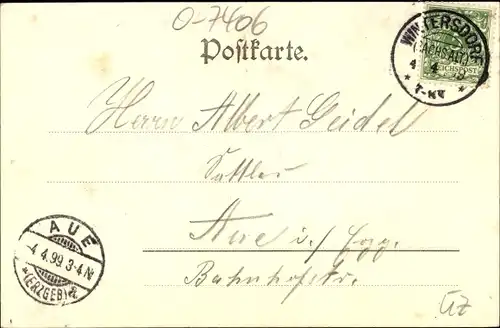 O-7406
Postkarte.
WINTERSDORF
(SACHS.ALT.)
REICHSPOST
Herrn Albert Geidel
Sattler
Aue i./Erzg.
Bahnhofstr.
AUE
4.4.99.3-4.N
*(ERZGEB)a